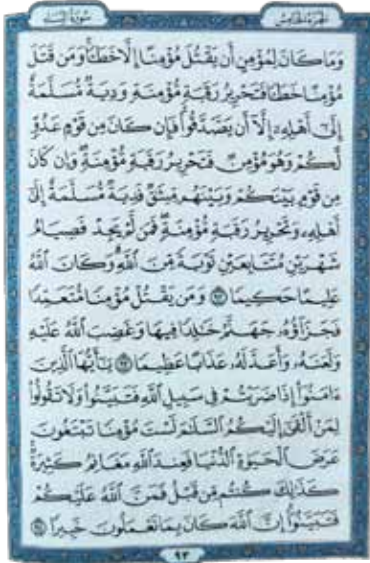 سورة النساء
الجزء الخامس
وَمَا كَانَ لِمُؤْمِنٍ أَن يَقْتُلَ مُؤْمِنًا إِلَّا خَطَـًٔا وَمَن قَتَلَ
مُؤْمِنًا خَطَـًٔا فَتَحْرِيرُ رَقَبَةٍ مُّؤْمِنَةٍ وَدِيَةٌ مُّسَلَّمَةٌ
إِلَىٰٓ أَهْلِهِۦٓ إِلَّآ أَن يَصَّدَّقُوا۟ فَإِن كَانَ مِن قَوْمٍ عَدُوٍّ
لَّكُمْ وَهُوَ مُؤْمِنٌ فَتَحْرِيرُ رَقَبَةٍ مُّؤْمِنَةٍ وَإِن كَانَ
مِن قَوْمٍۭ بَيْنَكُمْ وَبَيْنَهُم مِّيثَـٰقٌ فَدِيَةٌ مُّسَلَّمَةٌ إِلَىٰٓ
أَهْلِهِۦ وَتَحْرِيرُ رَقَبَةٍ مُّؤْمِنَةٍ فَمَن لَّمْ يَجِدْ فَصِيَامُ
شَهْرَيْنِ مُتَتَابِعَيْنِ تَوْبَةً مِّنَ ٱللَّهِ وَكَانَ ٱللَّهُ
عَلِيمًا حَكِيمًا ٩٢ وَمَن يَقْتُلْ مُؤْمِنًا مُّتَعَمِّدًا
فَجَزَآؤُهُۥ جَهَنَّمُ خَـٰلِدًا فِيهَا وَغَضِبَ ٱللَّهُ عَلَيْهِ
وَلَعَنَهُۥ وَأَعَدَّ لَهُۥ عَذَابًا عَظِيمًا ٩٣ يَـٰٓأَيُّهَا ٱلَّذِينَ
ءَامَنُوٓا۟ إِذَا ضَرَبْتُمْ فِى سَبِيلِ ٱللَّهِ فَتَبَيَّنُوا۟ وَلَا تَقُولُوا۟
لِمَنْ أَلْقَىٰٓ إِلَيْكُمُ ٱلسَّلَـٰمَ لَسْتَ مُؤْمِنًا تَبْتَغُونَ
عَرَضَ ٱلْحَيَوٰةِ ٱلدُّنْيَا فَعِندَ ٱللَّهِ مَغَانِمُ كَثِيرَةٌ
كَذَٰلِكَ كُنتُم مِّن قَبْلُ فَمَنَّ ٱللَّهُ عَلَيْكُمْ
فَتَبَيَّنُوٓا۟ إِنَّ ٱللَّهَ كَانَ بِمَا تَعْمَلُونَ خَبِيرًا ٩٤
٩٣